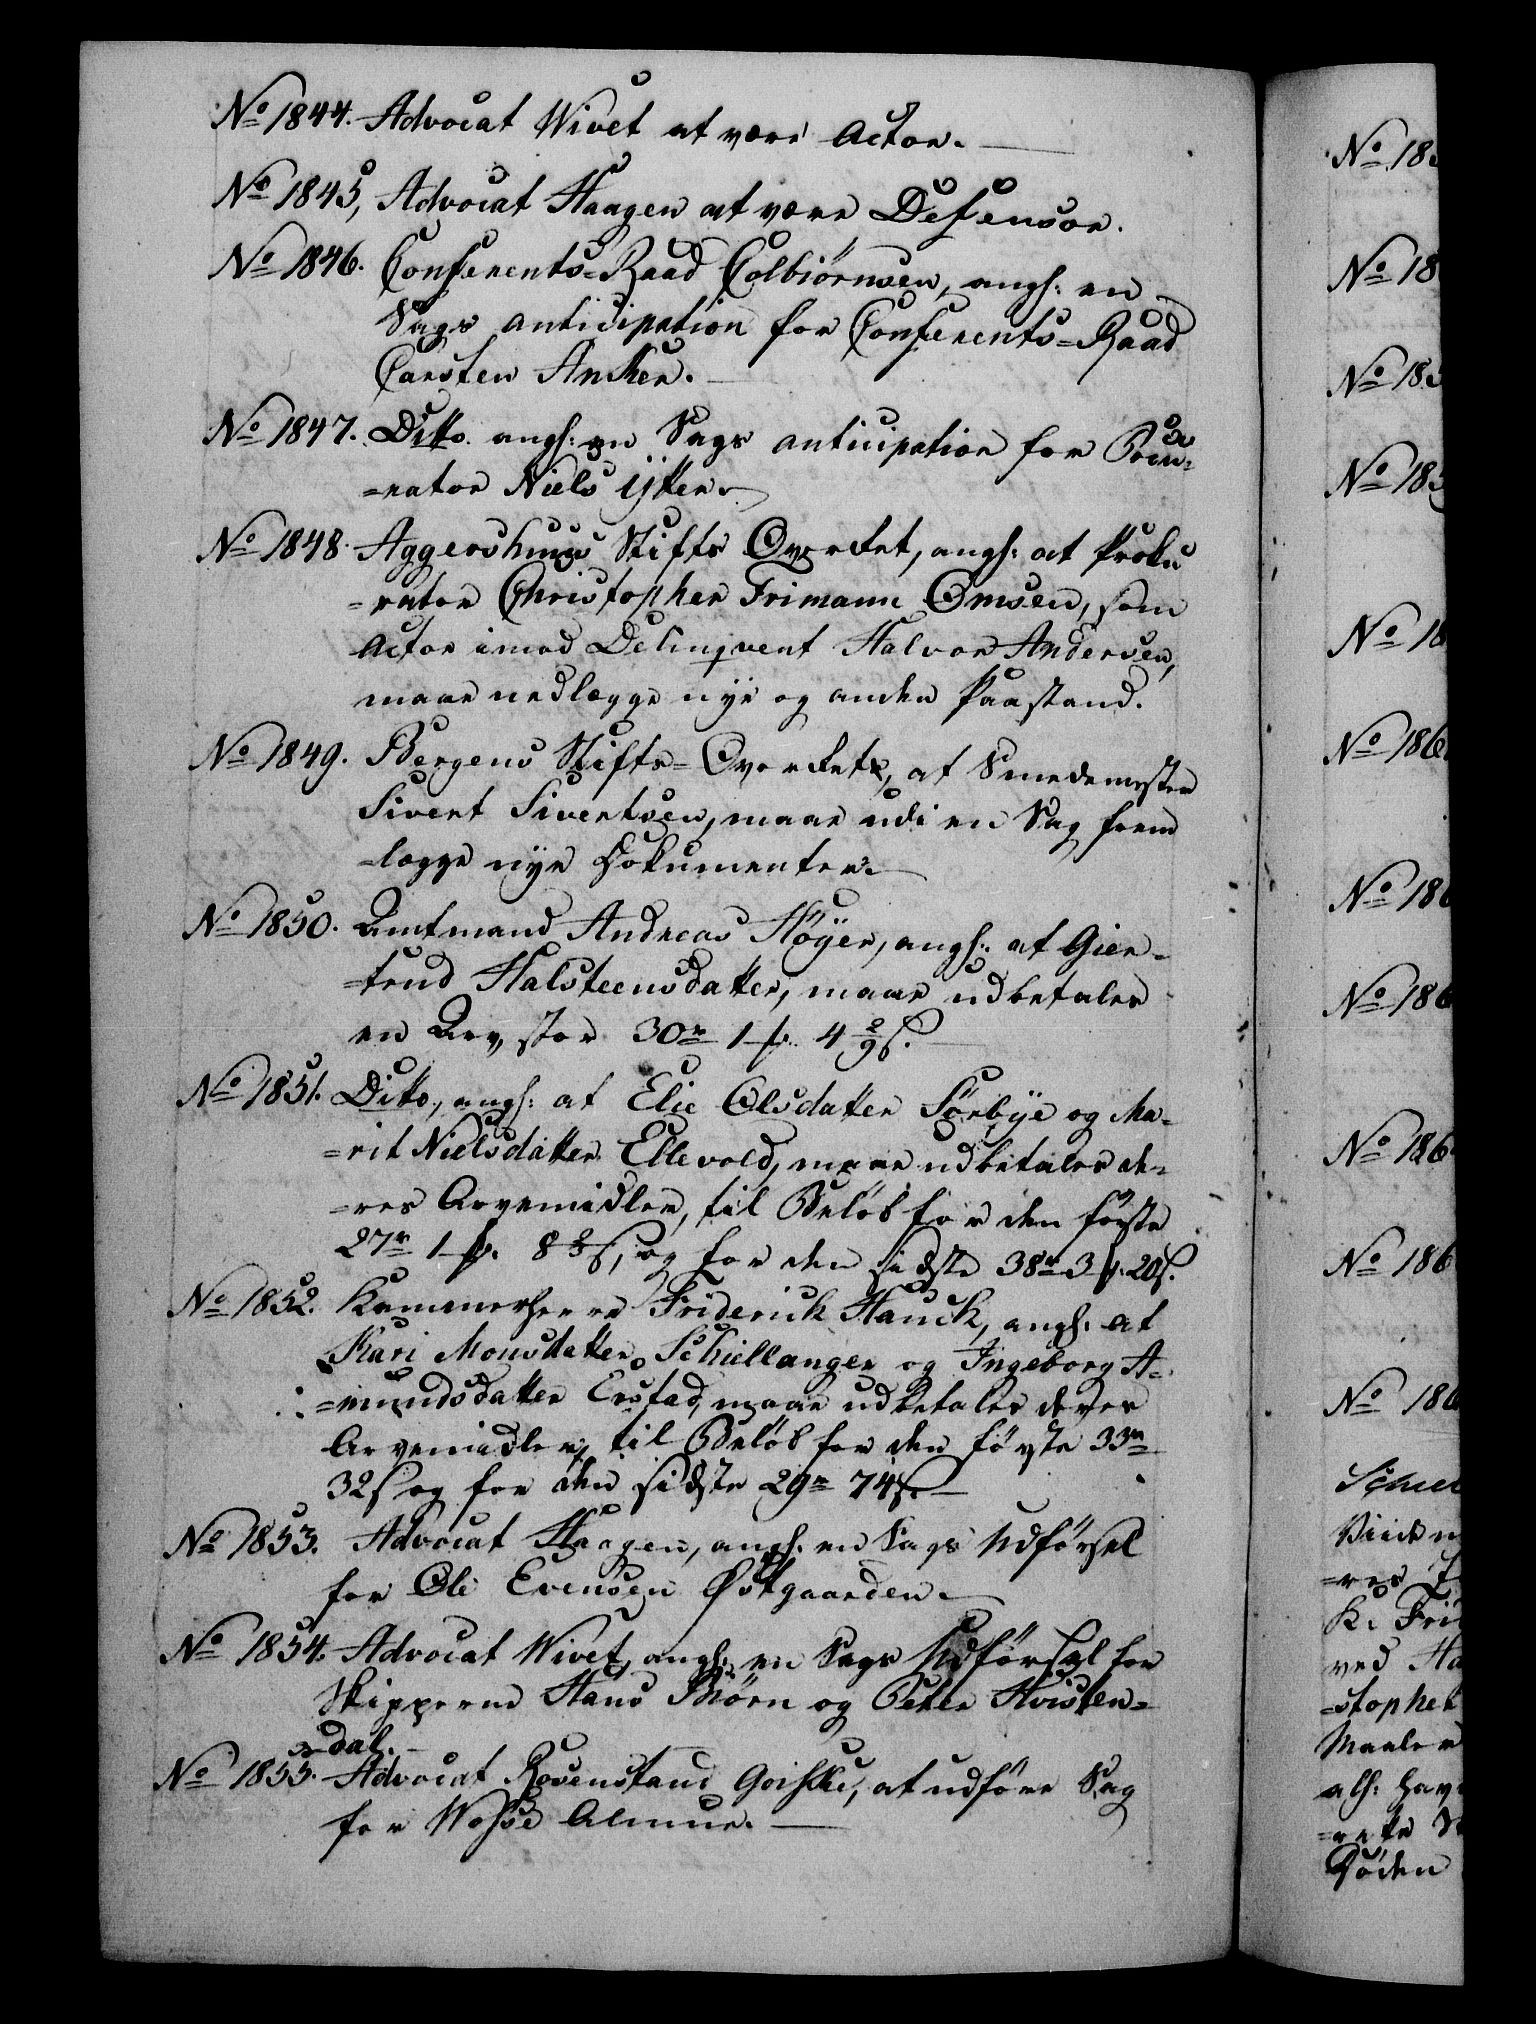 No 1844. Advocat Wivet at være Actor.
No 1845, Advocat Haagen at være Defensor.
No 1846. Conferents-Raad Colbiørnsen, angl: en
Sags anticipation for Conferents-Raad
Carsten Anker.
No 1847. Ditto angl: en Sags anticipation for Procu-
=rator Niels Ytter.
No 1848. Aggershuus Stifts Overret, angl: at Proku
=rator Christopher Frimann Omsen, som
Actor imod Delinqvent Halvor Andersen,
maae nedlægge nye og anden Paastand.
No 1849. Bergens Stifts-Overret, at Smedemester
Sivert Sivertsen, maae udi en Sag frem
=lægge nye Dokumenter.
No 1850. Amtmand Andreas Höyer, angl: at Gier-
=trud Halsteensdatter, maae udbetales
en Arv, stor 30 r 1 f 4 2/9 s.
No 1851. Ditto, angl: at Elie Olsdatter Sörbye og Ma-
=rit Nielsdatter Ellevold, maae udbetales de-
=res Arvemidler, til Belöb for den förste
27 r 1 f 8 2/3 s, og for den sidste 38 r 3 f 20 s.
No 1852. Kammerherre Friderich Hauch, angl: at
Kari Monsdatter Schiellanger og Ingeborg A-
=mundsdatter Erstad, maae udbetales deres
Arvemidler, til Belöb for den förste 33 r
32 s og for den sidste 29 r 74 s.
No 1853. Advocat Haagen, angl: en Sags Udförsel
for Ole Evensen Østgaarden.
No 1854. Advocat Wivet, angl: en Sags Udförsel for
Skipperne Hans Biörn og Peter Hvisten-
=dal.
No 1855. Advocat Rosenstand Goiske, at udföre Sag
for Wosse Almue.
No 185
No 18
No 185
No 185
No 18
No 186
No 186
No 186
No 186
No 186
No 186
=res
K. Fri
ved Ha
=stophe